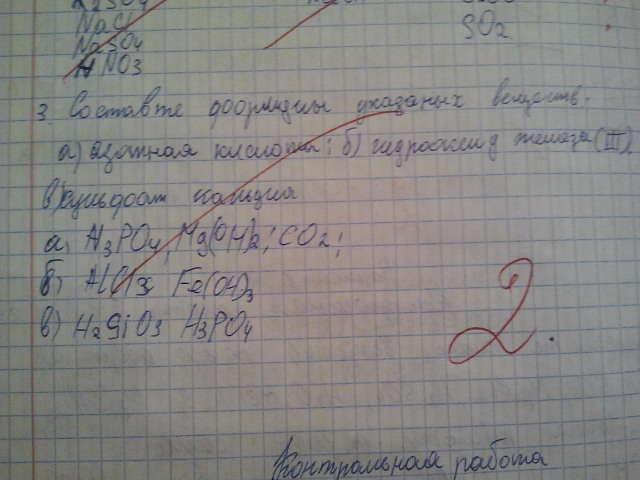 NaCl
Na2SO4 SO2
HNO3
3. Составте формулы указаных веществ.
а) азотная кислота; б) гидроксид железа (III)
в) сульфат кальция
а) H3PO4, Mg(OH)2; CO2;
б) AlCl3 Fe(OH)3
в) H2SiO3 H3PO4
2.
Контрольная работа